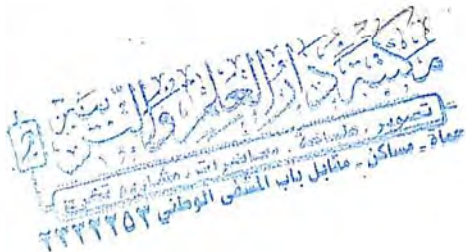 مكتبة دار العلم والنشر
تصوير. طباعة. محاضرات. مشاريع تخرج
حماة - مساكن - مقابل باب المشفى الوطني ٢٢٢٢٢٥٣